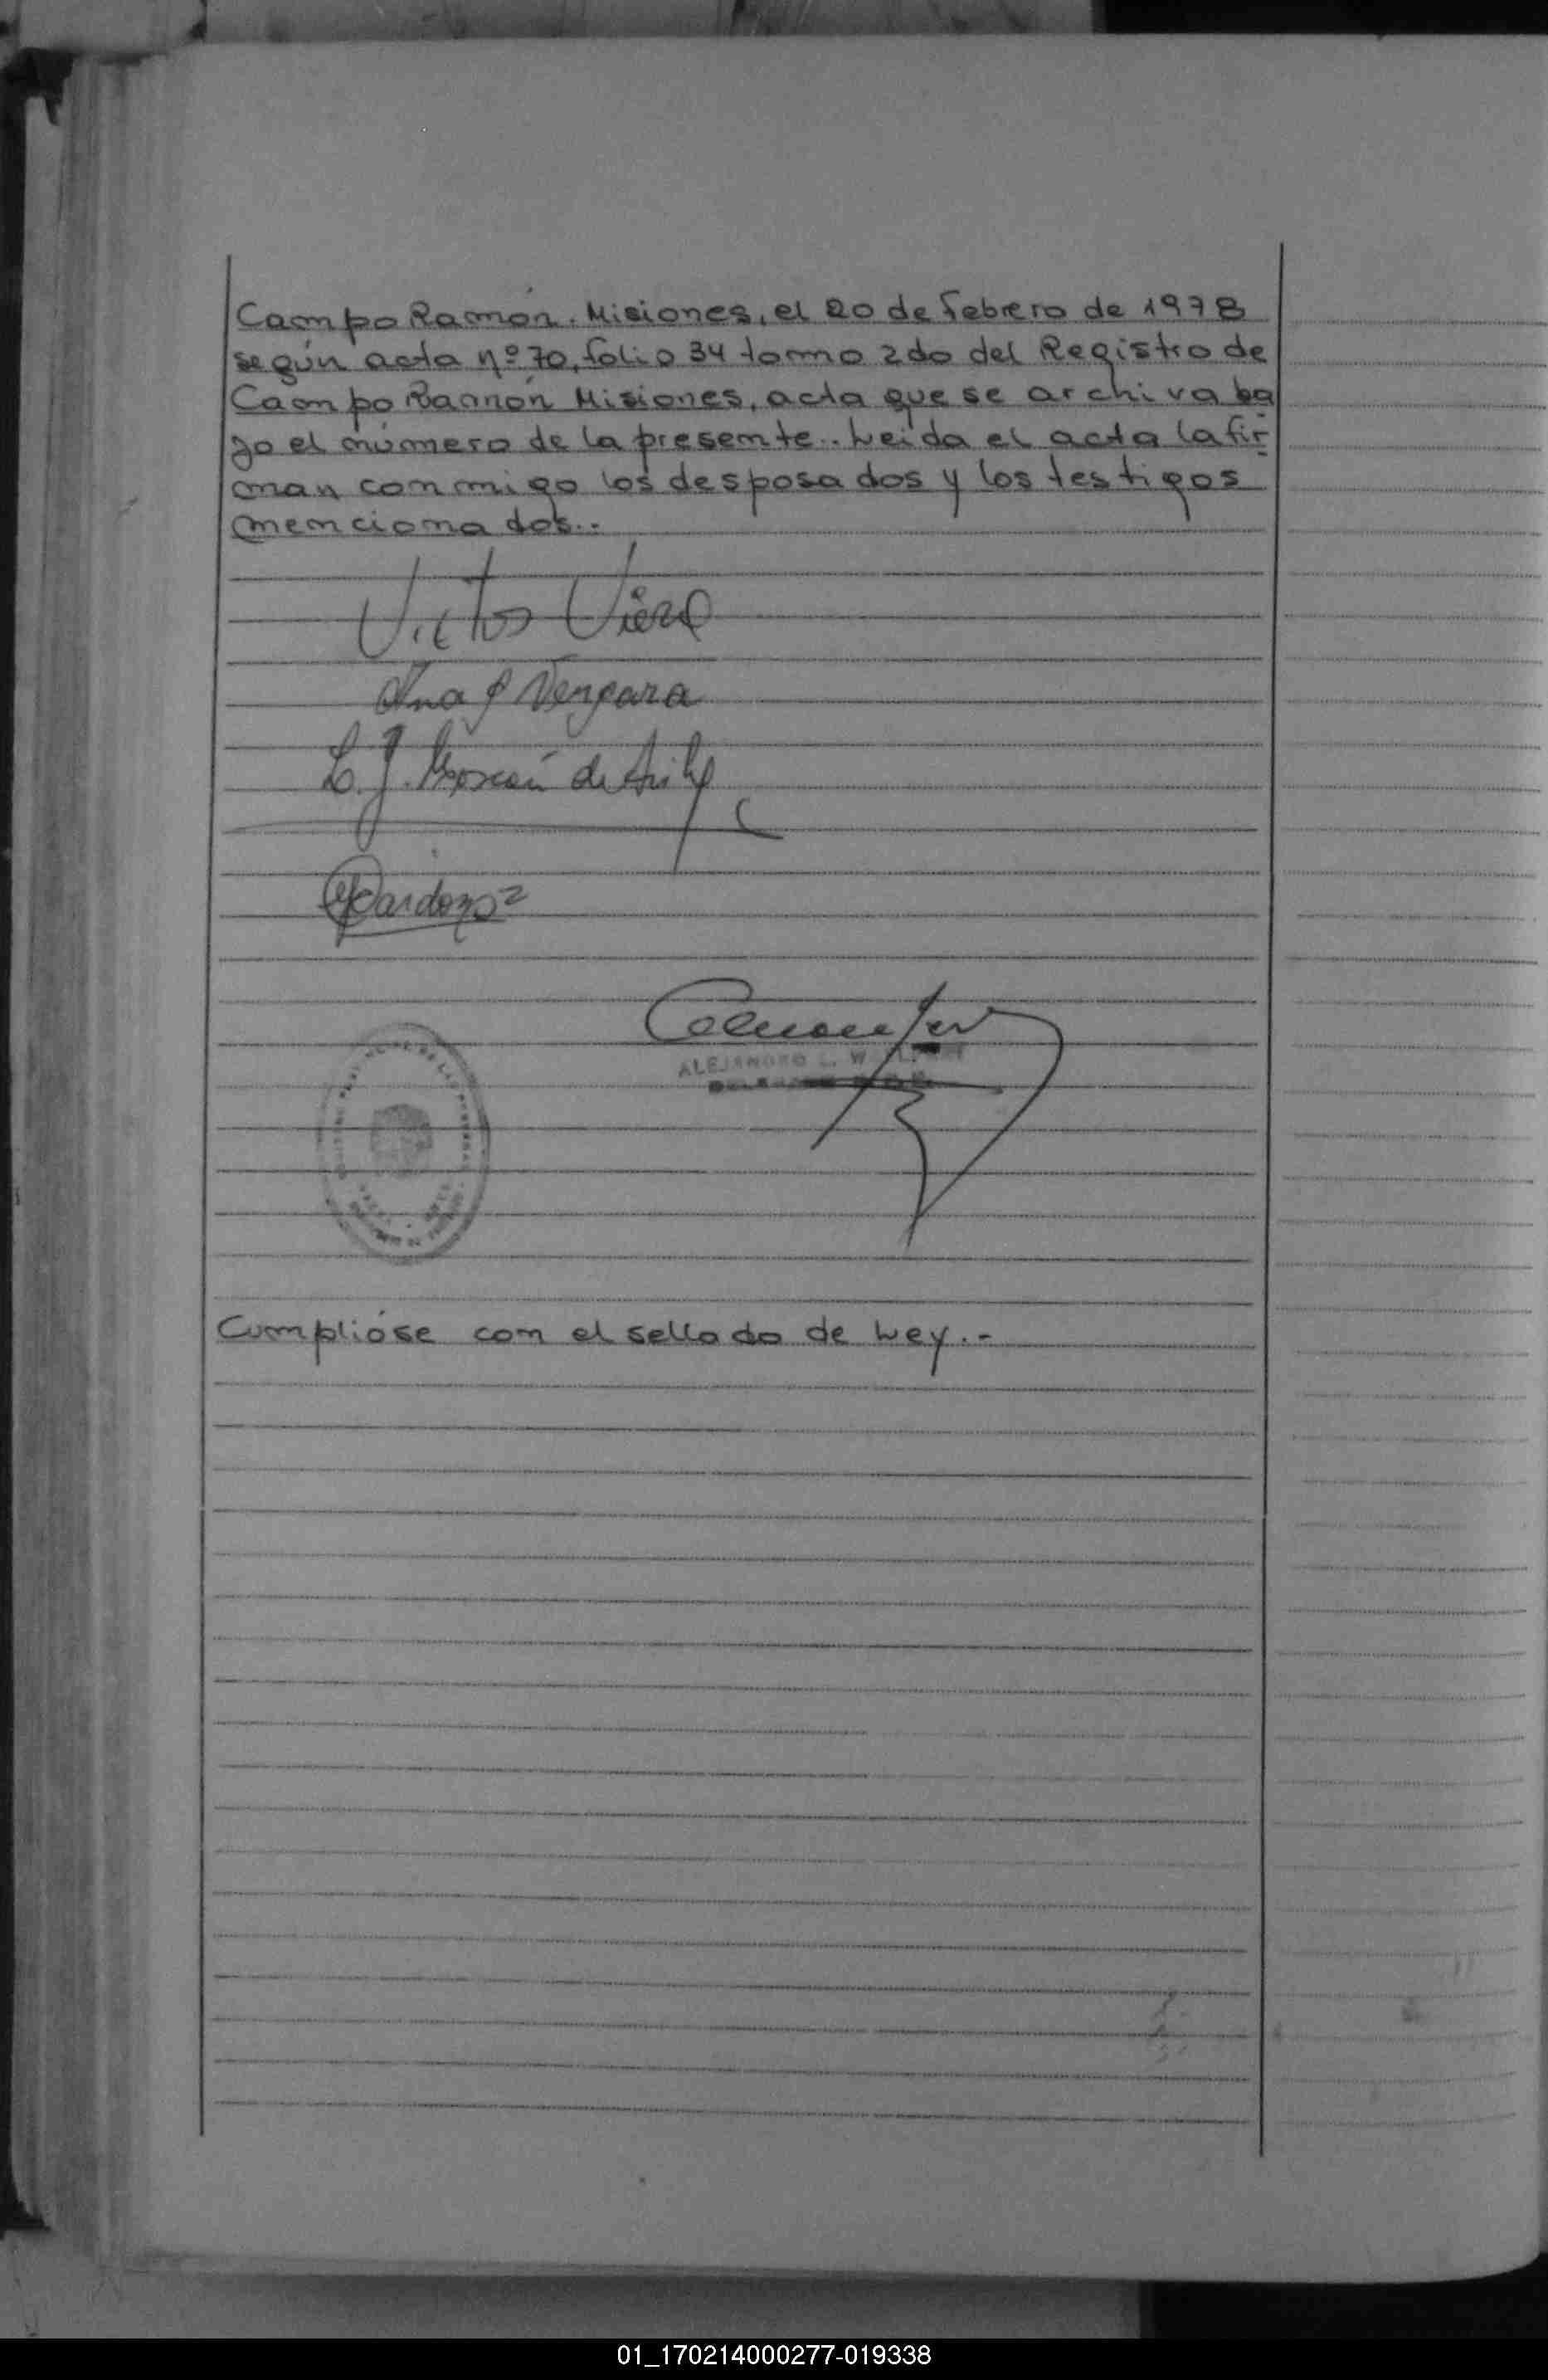 Campo Ramón. Misiones, el 20 de febrero de 1978
según acta nº 70, folio 34 tomo 2do del Registro de
Campo Ramón Misiones, acta que se archiva ba
jo el número de la presente.. Leida el acta la fir
man conmigo los desposados y los testigos
mencionados..
Victor Viera
Ana Vergara
L. J. de
Cardozo
ALEJANDRO L.
Cumplióse con el sellado de Ley.-
01_170214000277-019338